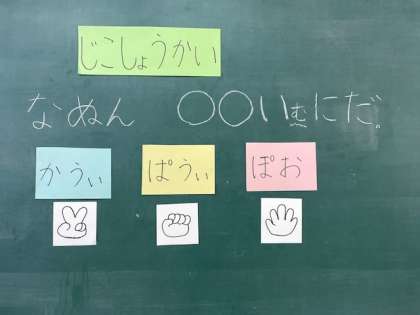 じこしょうかい
なぬん ○○いむにだ。
かうぃ ぱうぃ ぽお